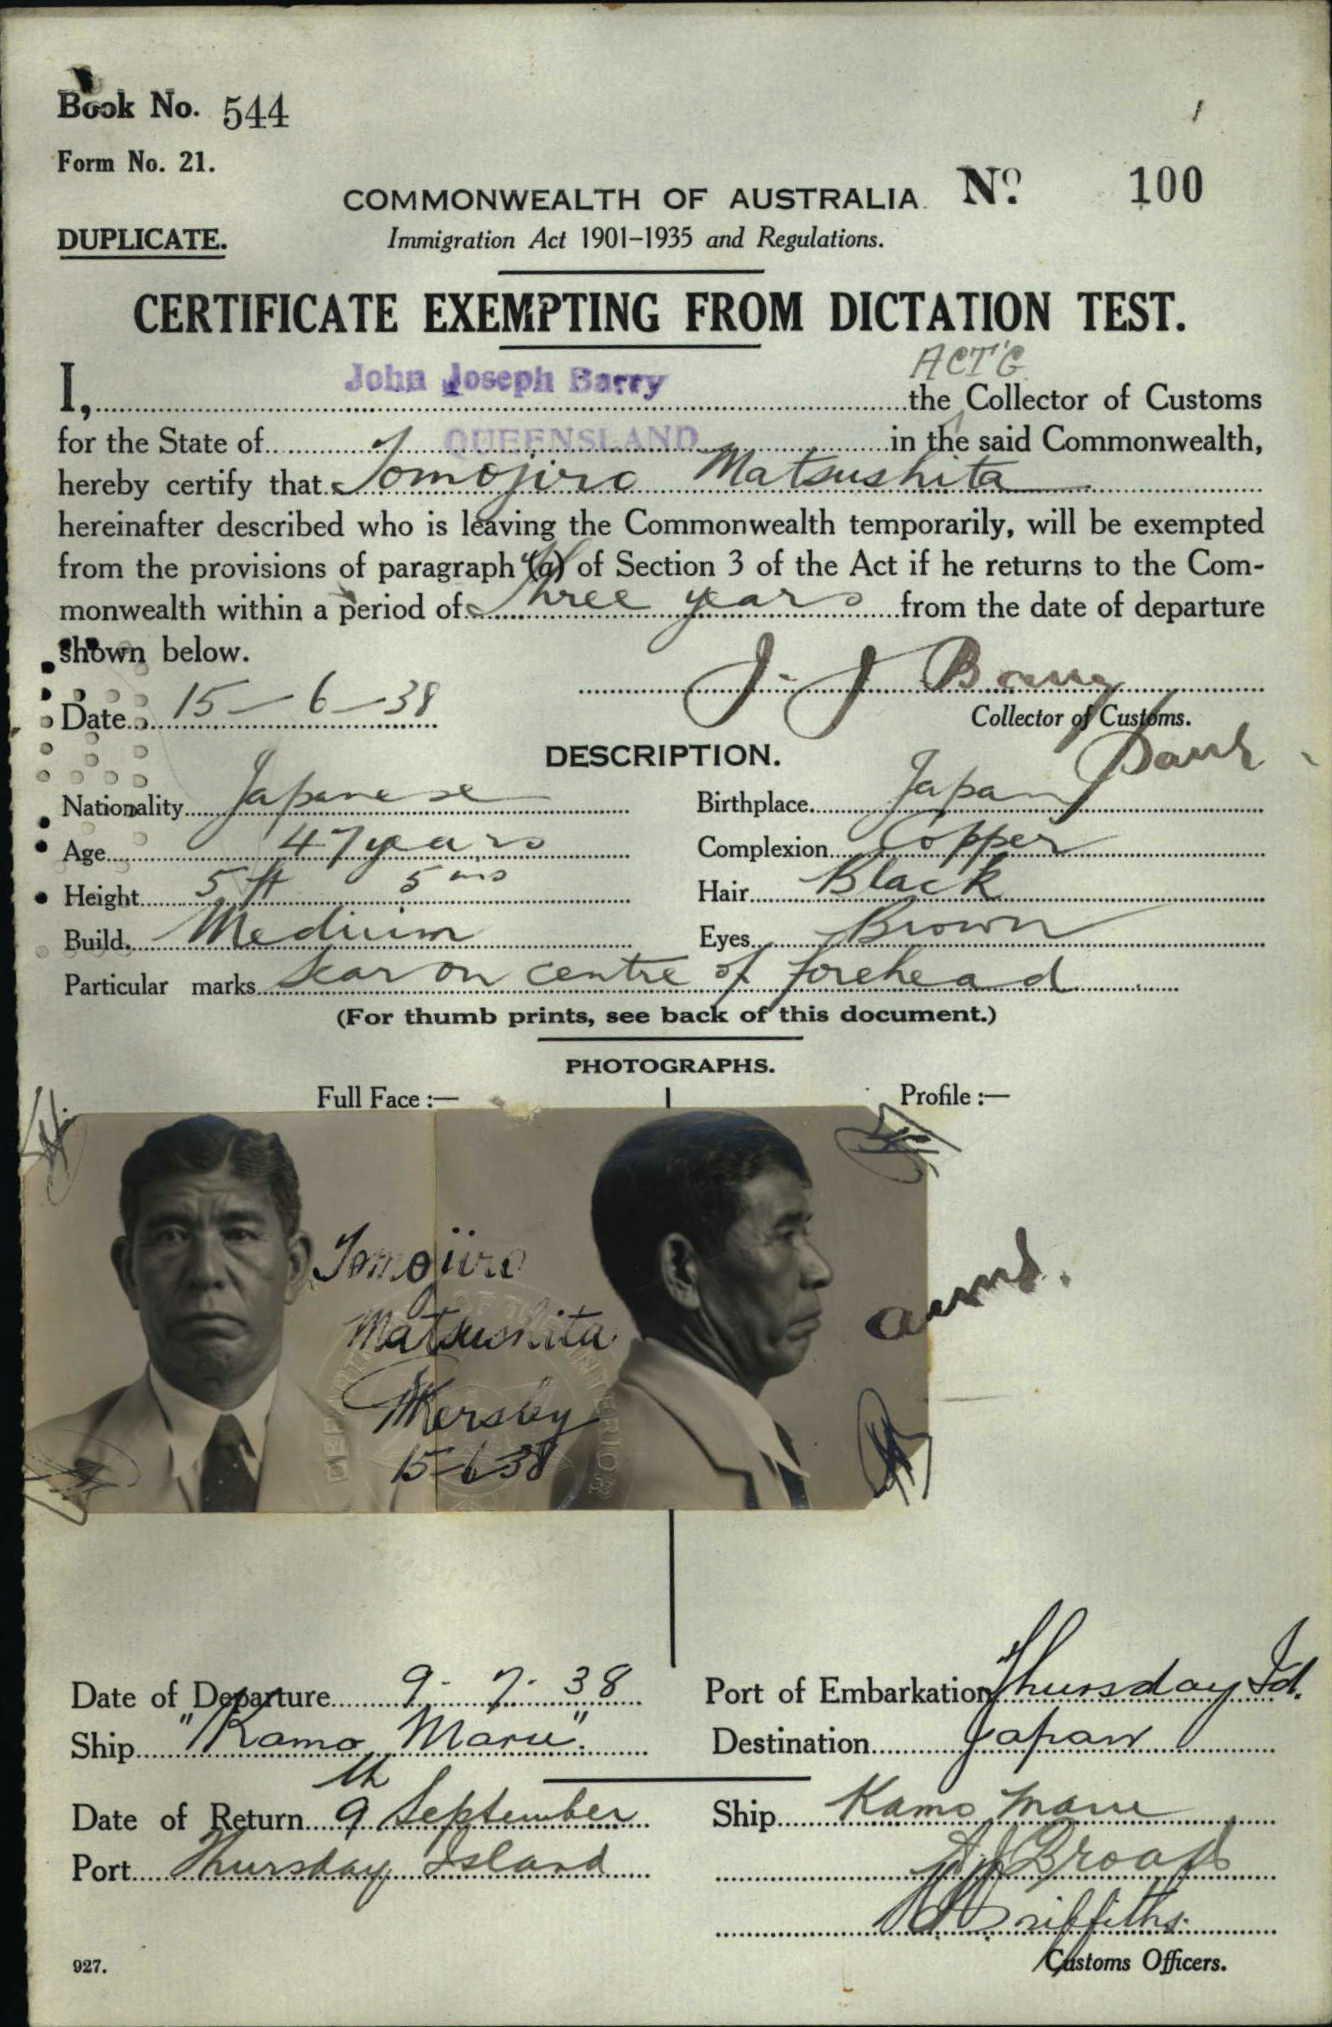 Book No. 544
Form No. 21.
COMMONWEALTH OF AUSTRALIA. No. 100
DUPLICATE.
Immigration Act 1901–1935 and Regulations.
CERTIFICATE EXEMPTING FROM DICTATION TEST.
ACT'G
I, John Joseph Barry the Collector of Customs
for the State of QUEENSLAND in the said Commonwealth,
hereby certify that Tomojiro Matsushita
hereinafter described who is leaving the Commonwealth temporarily, will be exempted
from the provisions of paragraph (a) of Section 3 of the Act if he returns to the Com-
monwealth within a period of Three years from the date of departure
shown below.
J. J Barry
Date 15-6-38
Collector of Customs.
DESCRIPTION.
Nationality Japanese Birthplace Japan
Age 47 years Complexion Copper
Height 5 ft 5 ins Hair Black
Build. Medium Eyes Brown
Particular marks Scar on centre of forehead
(For thumb prints, see back of this document.)
PHOTOGRAPHS.
Full Face :— Profile :—
Tomojiro
Matsushita
Kersley
15-6-38
Date of Departure 9-7-38 Port of Embarkation Thursday Id.
Ship "Kamo Maru". Destination Japan
Date of Return 9th September Ship Kamo Maru
Port Thursday Island
Griffiths
Customs Officers.
927.